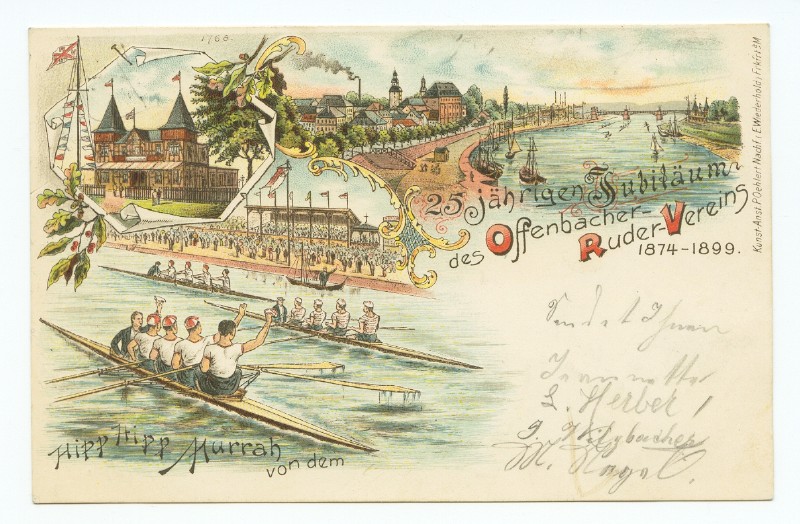 1768
25 jährigen Jubiläum
des Offenbacher-
Ruder-Vereins
1874-1899.
Kunst-Anst. P. Oehlert Nachf: E. Wiederhold i/Frkfrt a/M
Hipp Hipp Hurrah
von dem
Sendet Ihnen
L. Herber
M. Nagel